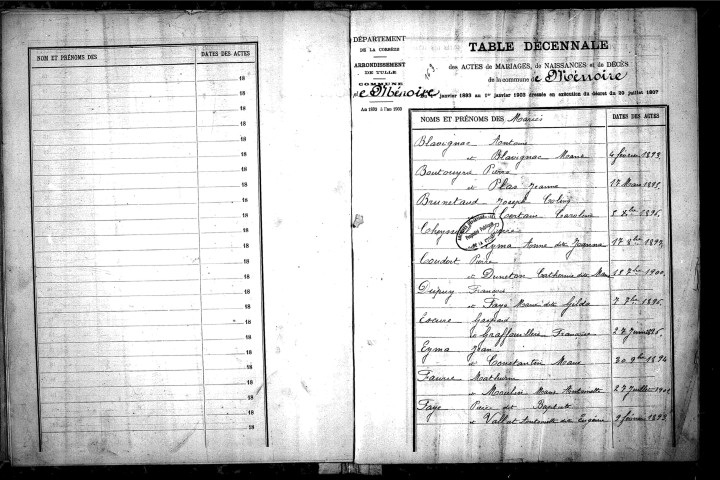 NOM ET PRÉNOMS DES
DATES DES ACTES
18
18
18
18
18
18
18
18
18
18
18
18
18
18
18
18
18
18
18
18
18
18
18
18
DÉPARTEMENT
DE LA CORRÈZE
ARRONDISSEMENT
DE TULLE
COMMUNE
de Ménoire
An 1893 à l'an 1903
163
TABLE DÉCENNALE
des ACTES de MARIAGES, de NAISSANCES et de DÉCÈS
de la commune de Ménoire
du 1er janvier 1893 au 1er janvier 1903 dressée en exécution du décret du 20 juillet 1807
NOMS ET PRÉNOMS DES Mariés
DATES DES ACTES
Blavignac Antoine
et Blavignac Marie 4 février 1893
Boutouyrie Pierre
et Plas Jeanne 17 Mars
Brunetaud Joseph
Certain Caroline 8 Xbre 1896
Cheyssi
Eyma Anne dite 17
Coudert Pierre
et Dunetan Catherine dite 18 7bre 1900
Dupuy François
et Faye Marie dite Gilda 7 7bre 1896
Gaspard
et Graffouillère Françoise 27 Juin
Eyma Jean
et Constantin Marie 30 9bre 1894
Faurie Mathurin
et Moulin Marie Antoinette 27 Juillet
Faye Pierre dit Baptiste
et Vallat dite Eugénie 9 février 1893